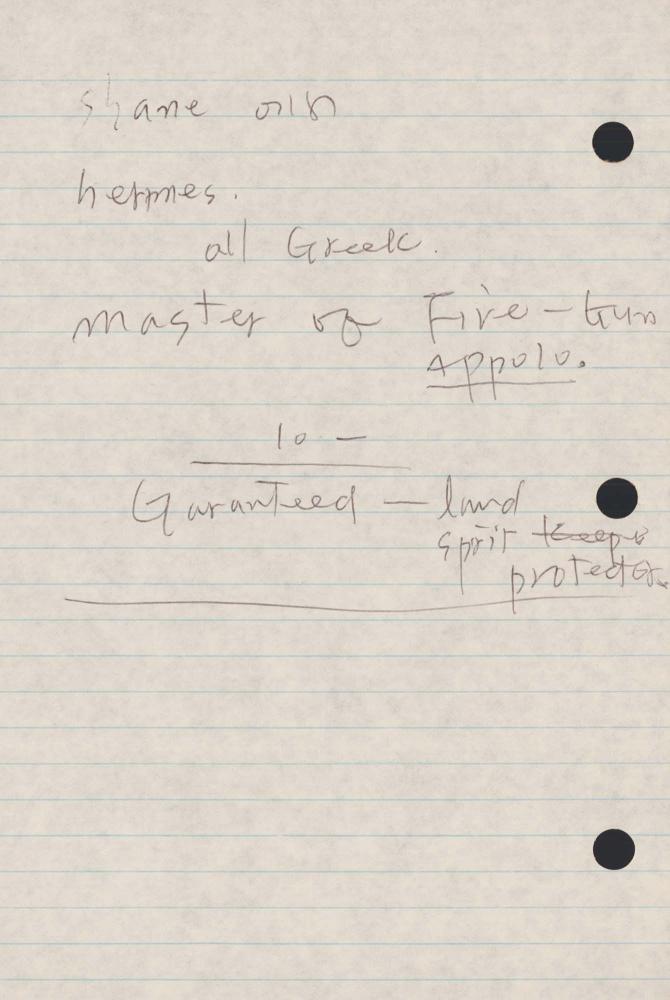 shane
hermes.
all Greek.
master of Fire - Gun
Appolo.
10 -
Garanteed - land
spirit keeper
protector